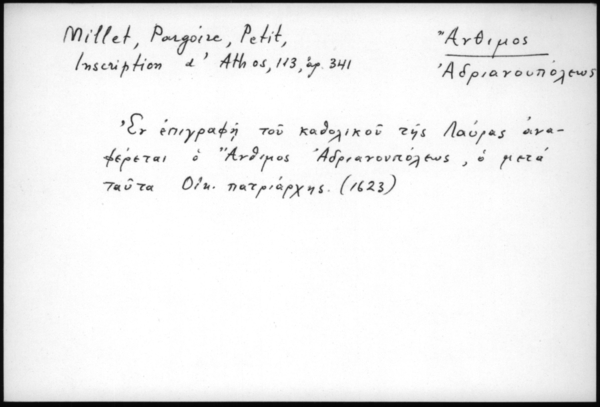 Millet, Pargoire, Petit,
Inscription d' Athos, 113, ἀρ. 341
Ἄνθιμος
Ἀδριανουπόλεως
Ἐν ἐπιγραφῇ τοῦ καθολικοῦ τῆς Λαύρας ἀνα-
φέρεται ὁ Ἄνθιμος Ἀδριανουπόλεως, ὁ μετά
ταῦτα Οἰκ. πατριάρχης. (1623)